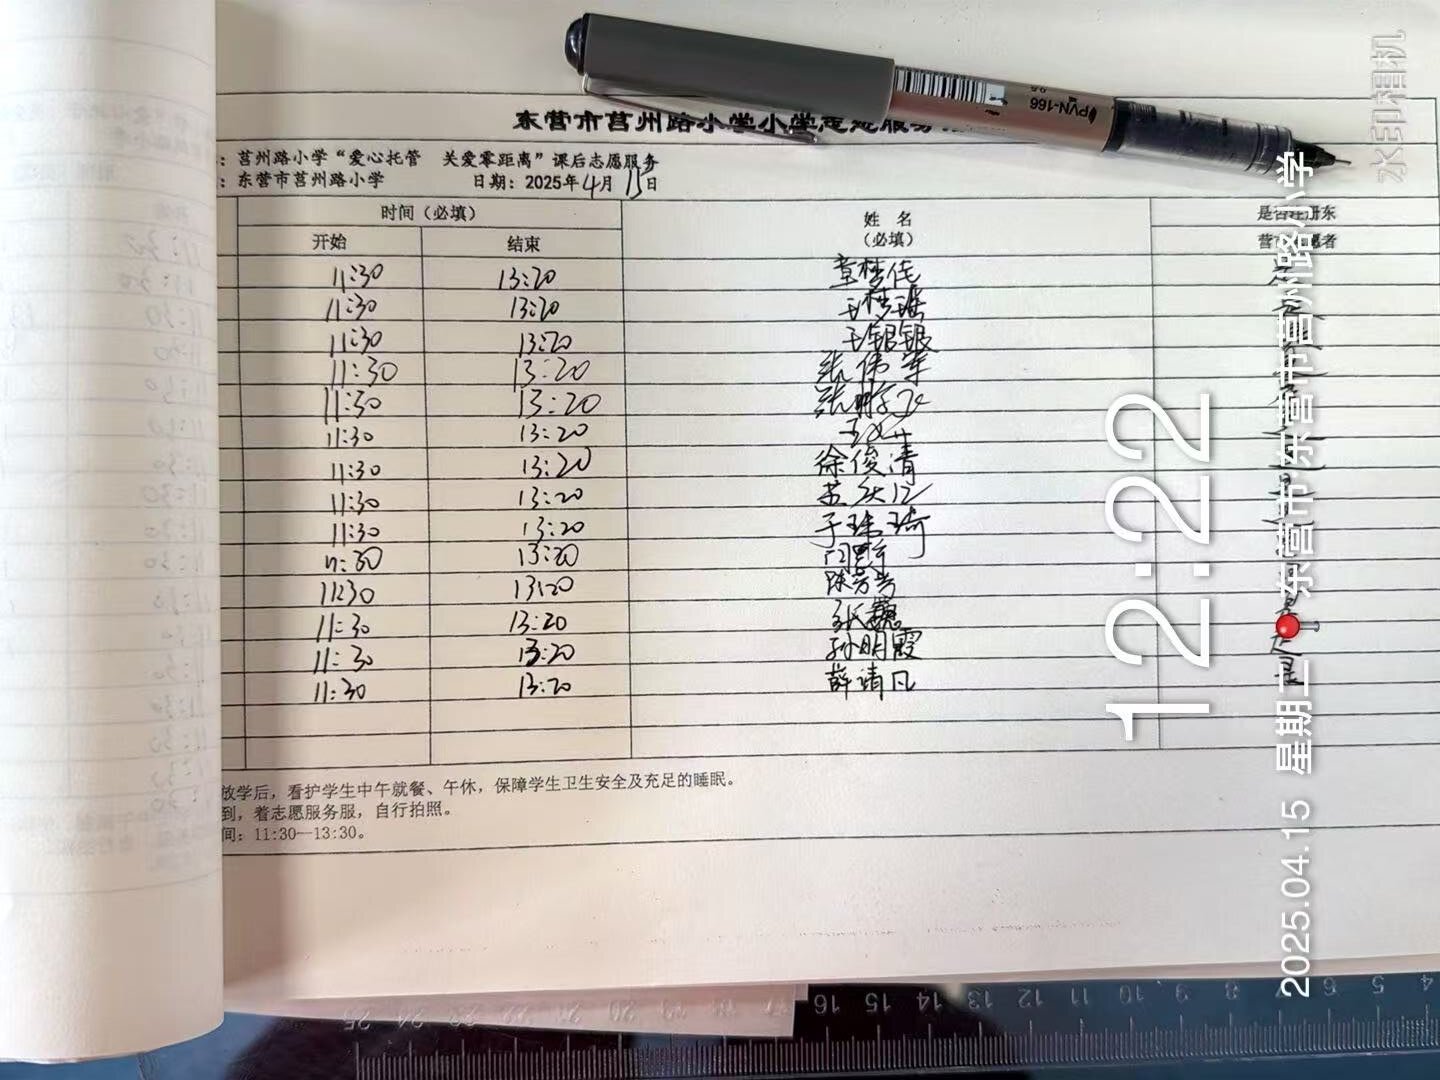 东营市莒州路小学小学志愿服务
：莒州路小学“爱心托管 关爱零距离”课后志愿服务
：东营市莒州路小学 日期：2025年4月15日
时间（必填） 姓 名 是否注册东
开始 结束 （必填） 营 愿者
11:30 13:20
11:30 13:20 王梦瑶
11:30 13:20 王银银
11:30 13:20 张伟军
11:30 13:20
11:30 13:20
11:30 13:20 徐俊清
11:30 13:20
11:30 13:20 于珠琦
11:30 13:20
11:30 13:20 陈芳芳
11:30 13:20 张巍
11:30 13:20 孙明霞
11:30 13:20 薛靖凡 是
放学后，看护学生中午就餐、午休，保障学生卫生安全及充足的睡眠。
到，着志愿服务服，自行拍照。
间：11:30—13:30。
PVN-166
水印相机
12:22
2025.04.15 星期二 东营市东营市莒州路小学
25 24 23 22 21 20 19 18 17 16 15 14 13 12 11 10 9 8 7 6 5 4